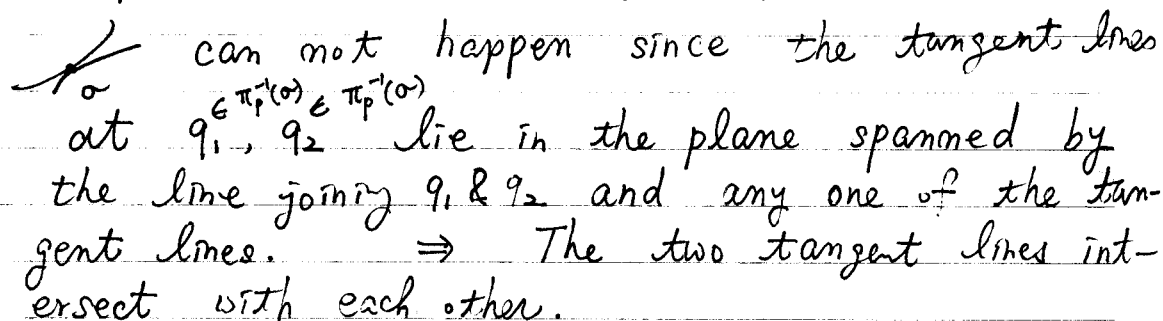 can not happen since the tangent lines
σ
∈ π_p^{-1}(σ) ∈ π_p^{-1}(σ)
at q_1, q_2 lie in the plane spanned by
the line joining q_1 & q_2 and any one of the tan-
gent lines. ⇒ The two tangent lines int-
ersect with each other.